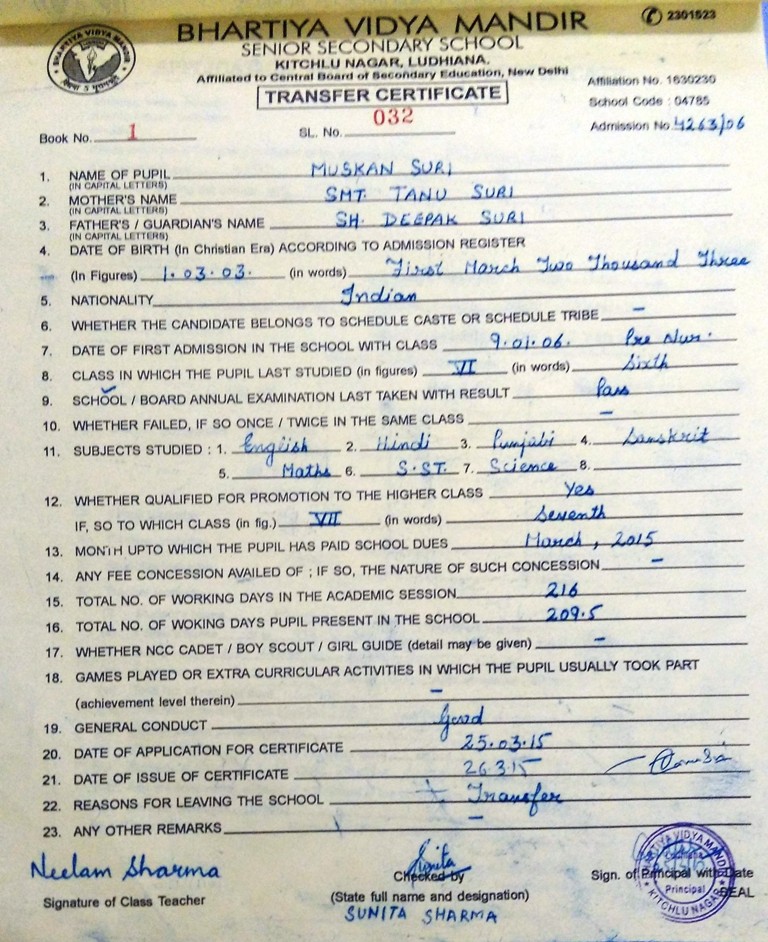 BHARTIYA VIDYA MANDIR
2301523
SENIOR SECONDARY SCHOOL
KITCHLU NAGAR, LUDHIANA.
Affiliated to Central Board of Secondary Education, New Delhi
Affiliation No. 1630230
TRANSFER CERTIFICATE
School Code : 04785
Book No. 1 SL. No. 032 Admission No 4263/06
1. NAME OF PUPIL MUSKAN SURI
(IN CAPITAL LETTERS)
2. MOTHER'S NAME SMT. TANU SURI
(IN CAPITAL LETTERS)
3. FATHER'S / GUARDIAN'S NAME SH. DEEPAK SURI
(IN CAPITAL LETTERS)
4. DATE OF BIRTH (In Christian Era) ACCORDING TO ADMISSION REGISTER
(In Figures) 1.03.03. (in words) First March Two Thousand Three
5. NATIONALITY Indian
6. WHETHER THE CANDIDATE BELONGS TO SCHEDULE CASTE OR SCHEDULE TRIBE –
7. DATE OF FIRST ADMISSION IN THE SCHOOL WITH CLASS 9.01.06. Pre Nur.
8. CLASS IN WHICH THE PUPIL LAST STUDIED (in figures) VI (in words) Sixth
9. SCHOOL / BOARD ANNUAL EXAMINATION LAST TAKEN WITH RESULT Pass
10. WHETHER FAILED, IF SO ONCE / TWICE IN THE SAME CLASS –
11. SUBJECTS STUDIED : 1. English 2. Hindi 3. Punjabi 4. Sanskrit
5. Maths 6. S.ST. 7. Science 8.
12. WHETHER QUALIFIED FOR PROMOTION TO THE HIGHER CLASS Yes
IF, SO TO WHICH CLASS (in fig.) VII (in words) Seventh
13. MONTH UPTO WHICH THE PUPIL HAS PAID SCHOOL DUES March, 2015
14. ANY FEE CONCESSION AVAILED OF ; IF SO, THE NATURE OF SUCH CONCESSION –
15. TOTAL NO. OF WORKING DAYS IN THE ACADEMIC SESSION 216
16. TOTAL NO. OF WOKING DAYS PUPIL PRESENT IN THE SCHOOL 209.5
17. WHETHER NCC CADET / BOY SCOUT / GIRL GUIDE (detail may be given) –
18. GAMES PLAYED OR EXTRA CURRICULAR ACTIVITIES IN WHICH THE PUPIL USUALLY TOOK PART
(achievement level therein) –
19. GENERAL CONDUCT Good
20. DATE OF APPLICATION FOR CERTIFICATE 25.03.15
21. DATE OF ISSUE OF CERTIFICATE 26.3.15
22. REASONS FOR LEAVING THE SCHOOL Transfer
23. ANY OTHER REMARKS –
Neelam Sharma Sunita
Checked by Sign. of Principal with Date
SEAL
Signature of Class Teacher (State full name and designation)
SUNITA SHARMA
BHARTIYA VIDYA MANDIR
Principal
KITCHLU NAGAR